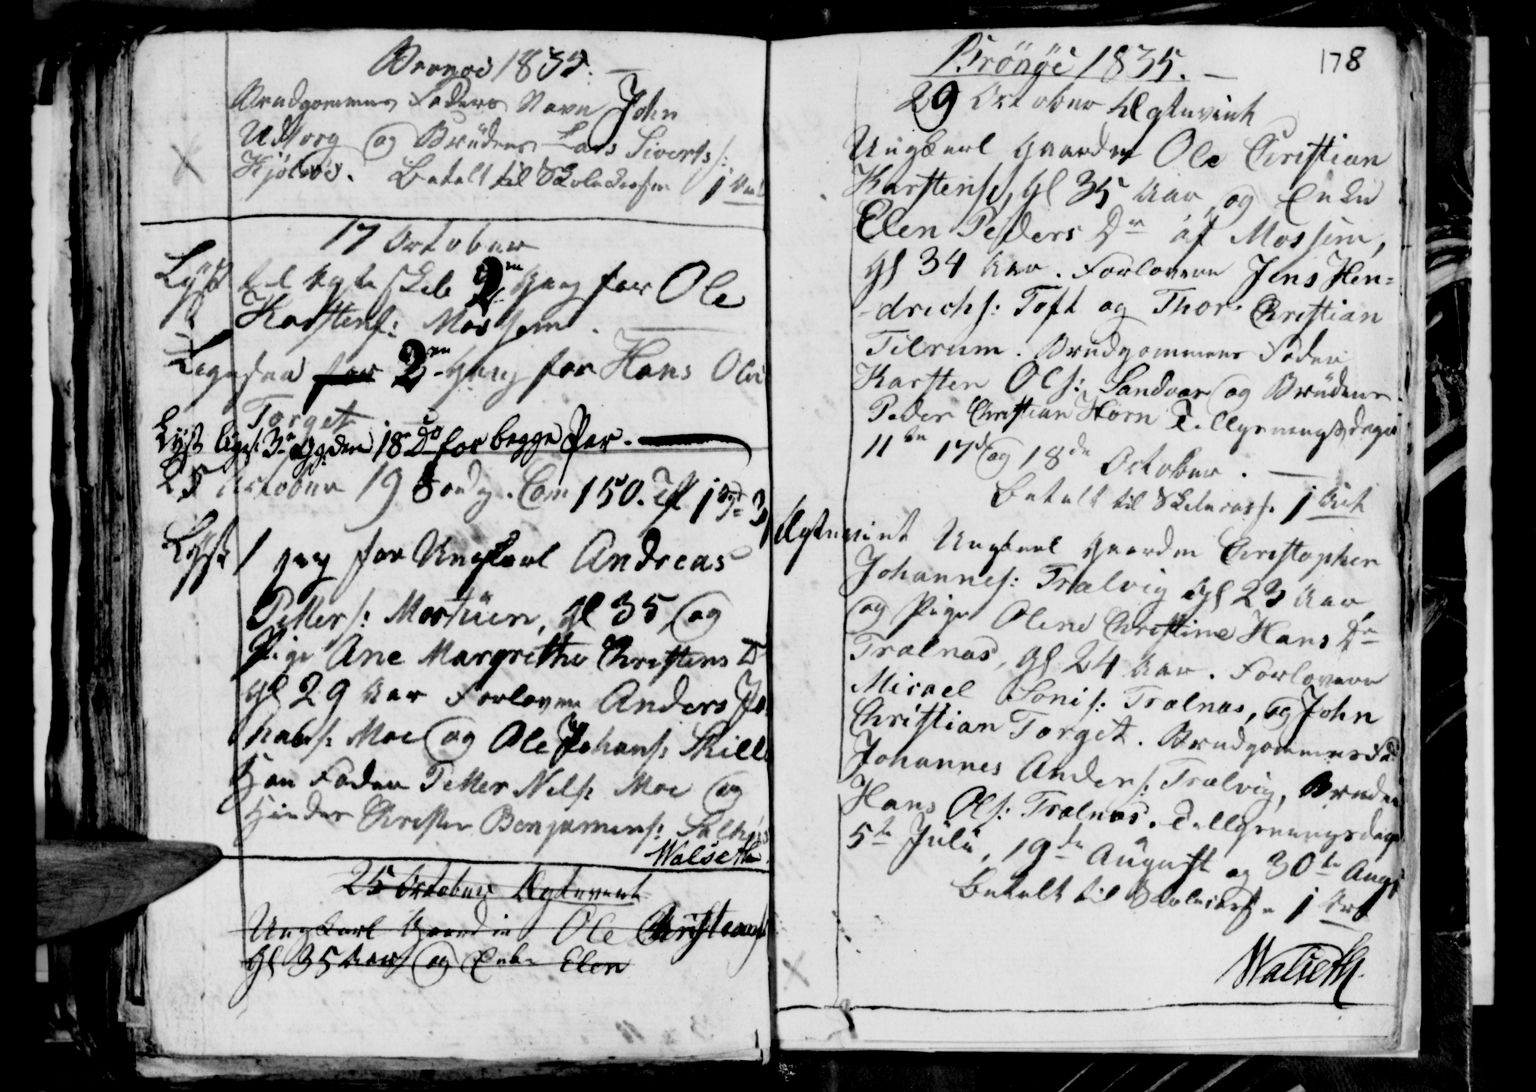 Brønøe 1835.
Brudgommens Faders Navn John
Udtorg og Brudens Lars Siverts:
Betalt til Skolecassen 1 Ort
17 October
Lyst til Ægteskab 2den Gang for Ole
Karstens: Mossem.
Ligesaa for 2den Gang for Hans Ols:
Torget
Lyst Ligesl. 3die Gg den 18de Do for begge Par.
October 19 Com 150.
Lyst 1 Gang for Ungkarl Andreas
Petters: Mostuen, gl 35, og
Pige Ane Margrethe Christens D
gl 29 Aar Forlovere Anders
Moe og Ole Johans: Skille
Han Fader Petter Nels: Moe og
Hendes Christen Benjamins:
Walseth
25 October Ægteviet
Ungkarl Gaardm Ole Christian
gl 35 Aar og Enke Elen
Brönöe 1835.
178
29 October Ægteviet
Ungkarl Gaardm Ole Christian
Karstens, gl 35 Aar, og Enke
Elen Peders Dr af Mossem,
gl 34 Aar. Forlovere Jens Hen=
-drichs: Toft og Thor Christian
Tilrum. Brudgommens Fader
Karsten Ols: Sandvær og Brudens
Peder Christian Horn Tillysningsdage
11te 17de og 18de October.
Betalt til Skolecass. 1 Ort
Ægteviet Ungkarl Gaardm Christopher
Johannes: Trælvig gl 23 Aar
og Pige Olene Christine Hans Dr
Trælnæs, gl 24 Aar. Forlovere
Micael Sonis: Trælnæs, og John
Christian Torget. Brudgommens Fad
Johannes Anders: Trælvig, Bruden
Hans Ols: Trælnæs. Tillysningsdage
5te Juli, 19de August og 30te Augs
Betalt til Skolecass. 1 Ort
Walseth.